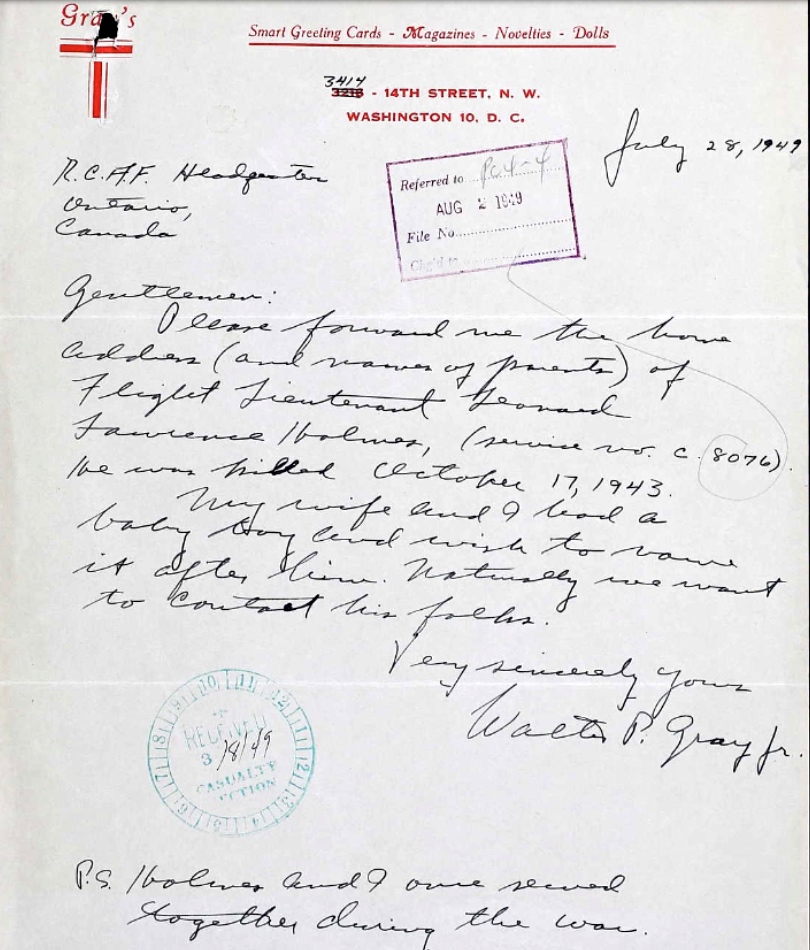 Gray's
Smart Greeting Cards - Magazines - Novelties - Dolls
3414
3218 - 14TH STREET, N. W.
WASHINGTON 10, D. C.
July 28, 1949
R.C.A.F. Headquater
Ontario,
Canada
Referred to
AUG 2 1949
File No.
Chg'd to
Gentlemen:
Please forward me the home
address (and names of parents) of
Flight Lieutenant Leonard
Lawrence Holmes, (service no. C 8076).
He was killed October 17, 1943.
My wife and I had a
baby boy and wish to name
it after him. Naturally we want
to contact his folks.
Very sincerely yours
Walter P. Gray Jr.
RECEIVED
3/8/49
CASUALTY
SECTION
P.S. Holmes and I once served
together during the war.